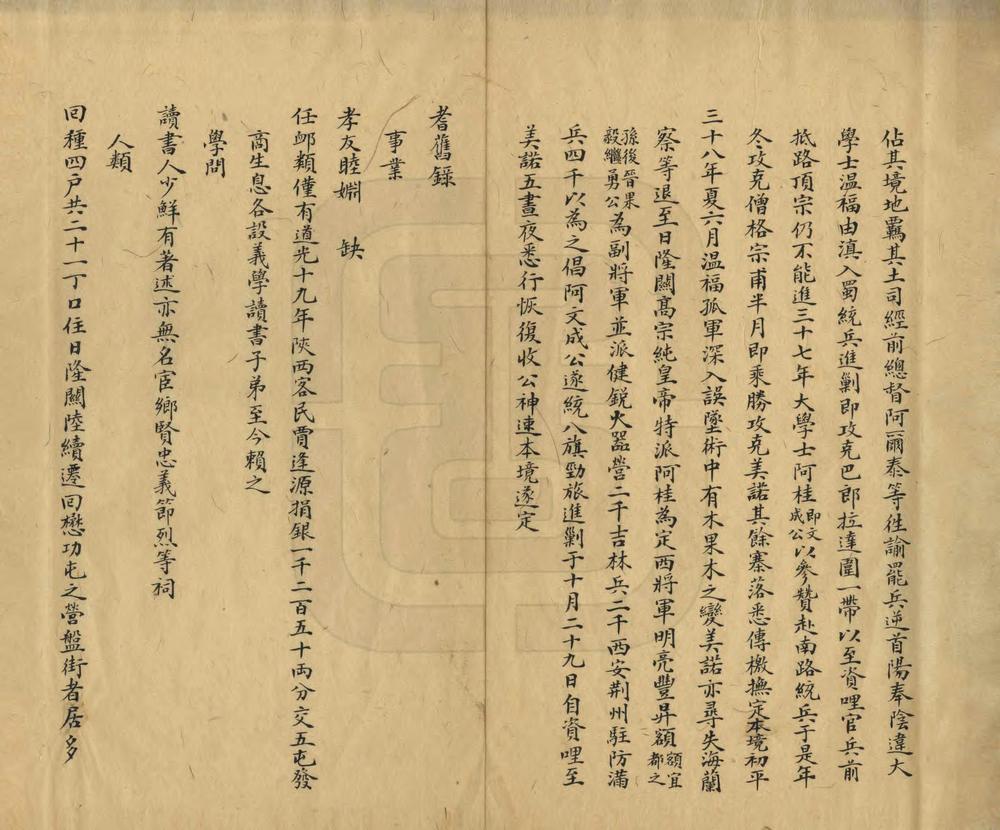 佔其境地羈其土司經前總督阿爾泰等徃諭罷兵逆首陽奉陰違大
學士温福由滇入蜀統兵進剿即攻克巴郎拉達圍一帶以至資哩官兵前
抵路頂宗仍不能進三十七年大學士阿桂即文成公以參贊赴南路統兵于是年
冬攻克僧格宗甫半月即乘勝攻克美諾其餘寨落悉傳檄撫定本境初平
三十八年夏六月温福孤軍深入誤墜術中有木果木之變美諾亦尋失海蘭
察等退至日隆關高宗純皇帝特派阿桂為定西將軍明亮豐昇額額宜都之
孫後晉果毅繼勇公為副將軍並派健鋭火器營二千吉林兵二千西安荆州駐防滿
兵四千以為之倡阿文成公遂統八旗勁旅進剿于十月二十九日自資哩至
美諾五晝夜悉行恢復收公神速本境遂定
耆舊録
事業
孝友睦婣 缺
任卹類僅有道光十九年陝西客民賈逢源捐銀一千二百五十両分交五屯發
商生息各設義學讀書子弟至今賴之
學問
讀書人少鮮有著述亦無名宦鄉賢忠義節烈等祠
人類
回種四户共二十一丁口住日隆關陸續遷回懋功屯之營盤街者居多